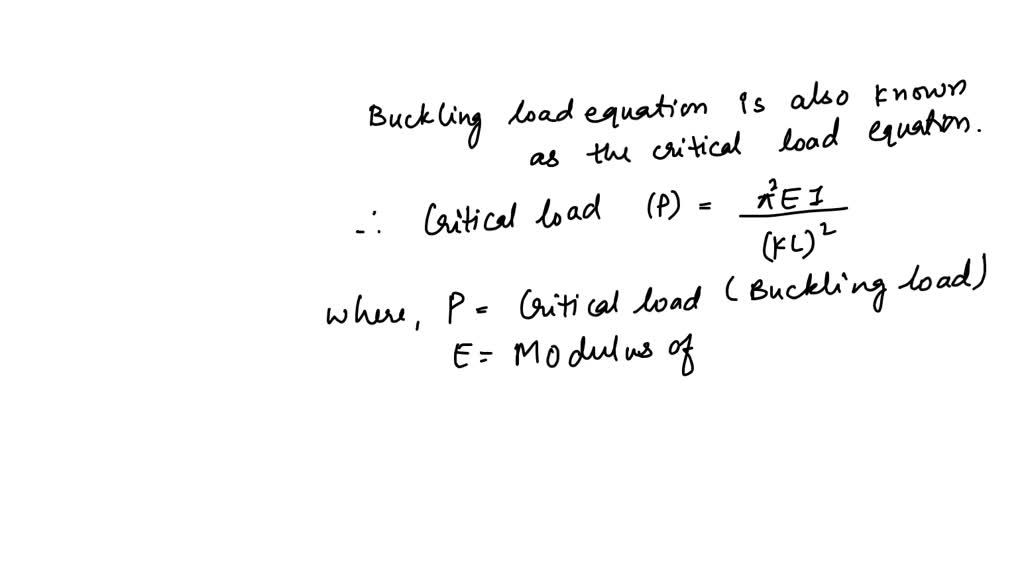 Buckling load equation is also known
as the critical load equation.
∴ Critical load (P) = π²EI / (KL)²
where, P = Critical load (Buckling load)
E = Modulus of